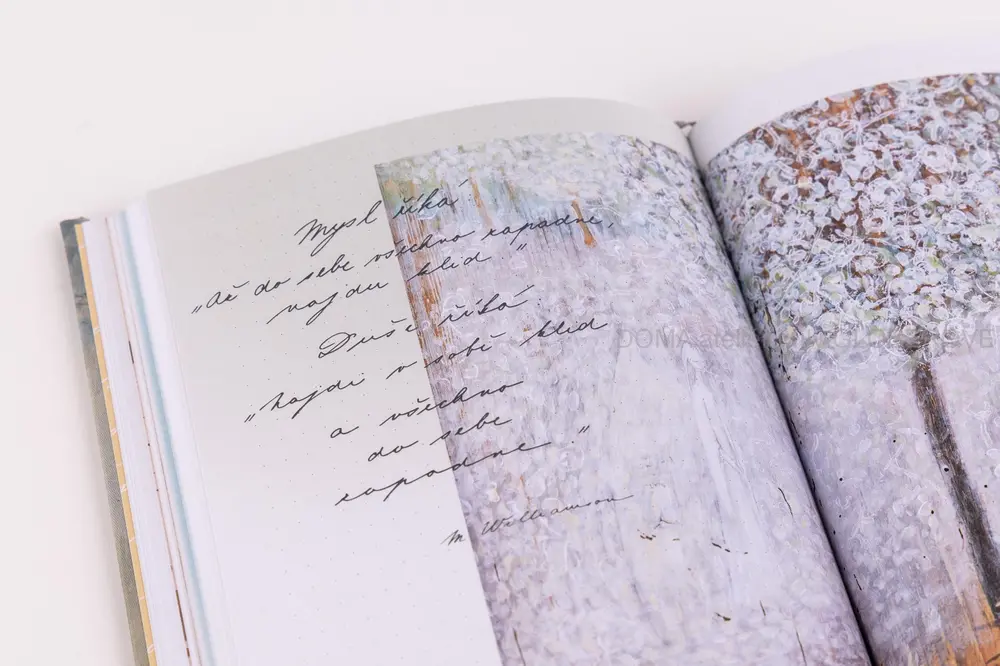 Mysl říká:
„Až do sebe všechno zapadne,
najdu klid."
Duše říká:
„Najdi v sobě klid
a všechno
do sebe
zapadne."
M. Williamson
DOMA